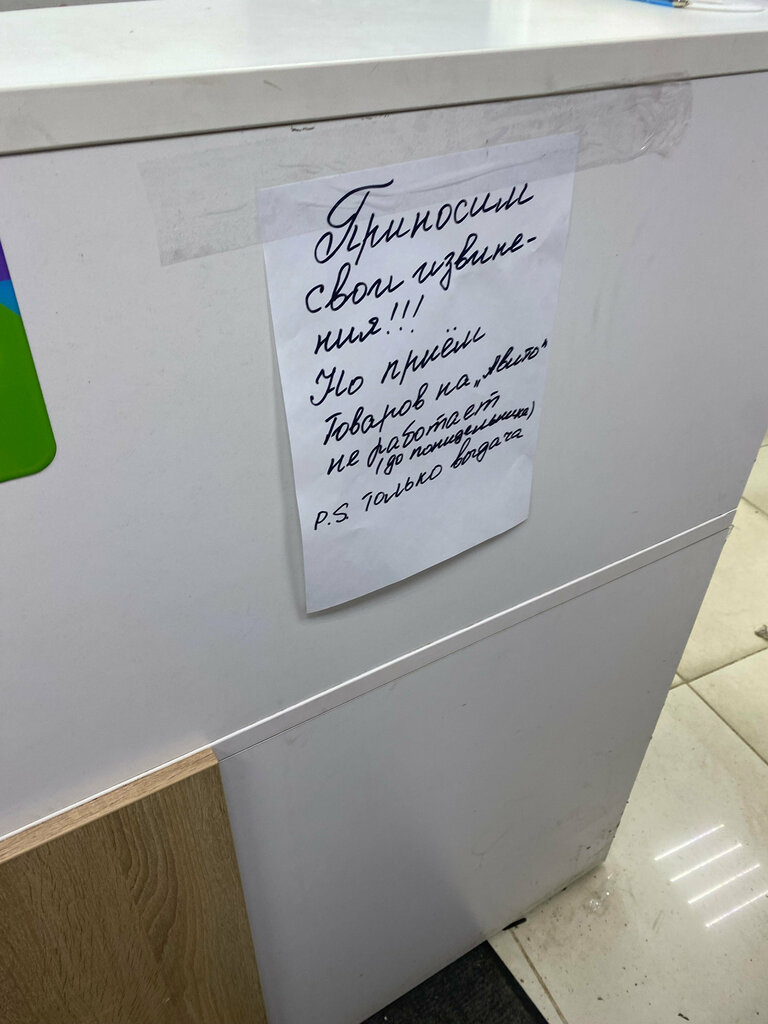 Приносим
свои извине-
ния!!!
Но приём
товаров на „Авито"
не работает
(до понидельника)
P.S. только выдача